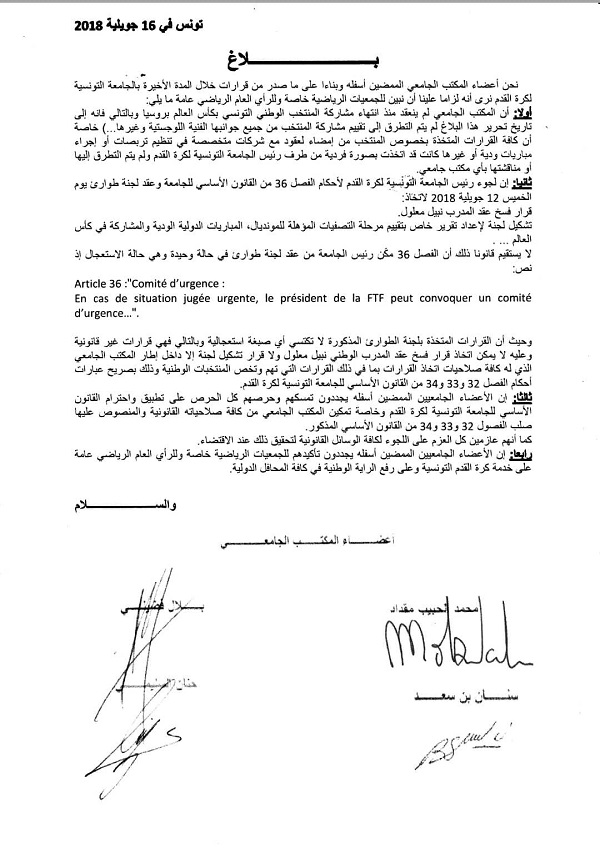 تونس في 16 جويلية 2018
بـــــــــلاغ
نحن أعضاء المكتب الجامعي الممضين أسفله وبناءا على ما صدر من قرارات خلال المدة الأخيرة بالجامعة التونسية
لكرة القدم نرى أنه لزاما علينا أن نبين للجمعيات الرياضية خاصة وللرأي العام الرياضي عامة ما يلي:
أولا: أن المكتب الجامعي لم ينعقد منذ انتهاء مشاركة المنتخب الوطني التونسي بكأس العالم بروسيا وبالتالي فانه إلى
تاريخ تحرير هذا البلاغ لم يتم التطرق إلى تقييم مشاركة المنتخب من جميع جوانبها الفنية اللوجستية وغيرها...) خاصة
أن كافة القرارات المتخذة بخصوص المنتخب من إمضاء لعقود مع شركات متخصصة في تنظيم تربصات أو إجراء
مباريات ودية أو غيرها كانت قد اتخذت بصورة فردية من طرف رئيس الجامعة التونسية لكرة القدم ولم يتم التطرق إليها
أو مناقشتها بأي مكتب جامعي.
ثانيا: إن لجوء رئيس الجامعة التونسية لكرة القدم لأحكام الفصل 36 من القانون الأساسي للجامعة وعقد لجنة طوارئ يوم
الخميس 12 جويلية 2018 لاتخاذ:
قرار فسخ عقد المدرب نبيل معلول.
تشكيل لجنة لإعداد تقرير خاص بتقييم مرحلة التصفيات المؤهلة للمونديال، المباريات الدولية الودية والمشاركة في كأس
العالم ... .
لا يستقيم قانونا ذلك أن الفصل 36 مكّن رئيس الجامعة من عقد لجنة طوارئ في حالة وحيدة وهي حالة الاستعجال إذ
نص:
Article 36 :"Comité d'urgence :
En cas de situation jugée urgente, le président de la FTF peut convoquer un comité
d'urgence...".
وحيث أن القرارات المتخذة بلجنة الطوارئ المذكورة لا تكتسي أي صبغة استعجالية وبالتالي فهي قرارات غير قانونية
وعليه لا يمكن اتخاذ قرار فسخ عقد المدرب الوطني نبيل معلول ولا قرار تشكيل لجنة إلا داخل إطار المكتب الجامعي
الذي له كافة صلاحيات اتخاذ القرارات بما في ذلك القرارات التي تهم وتخص المنتخبات الوطنية وذلك بصريح عبارات
أحكام الفصل 32 و33 و34 من القانون الأساسي للجامعة التونسية لكرة القدم.
ثالثا: إن الأعضاء الجامعيين الممضين أسفله يجددون تمسكهم وحرصهم كل الحرص على تطبيق واحترام القانون
الأساسي للجامعة التونسية لكرة القدم وخاصة تمكين المكتب الجامعي من كافة صلاحياته القانونية والمنصوص عليها
صلب الفصول 32 و33 و34 من القانون الأساسي المذكور.
كما أنهم عازمين كل العزم على اللجوء لكافة الوسائل القانونية لتحقيق ذلك عند الاقتضاء.
رابعا: إن الأعضاء الجامعيين الممضين أسفله يجددون تأكيدهم للجمعيات الرياضية خاصة وللرأي العام الرياضي عامة
على خدمة كرة القدم التونسية وعلى رفع الراية الوطنية في كافة المحافل الدولية.
والســـــــــلام
أعضـــاء المكتـــب الجامعـــي
محمد الحبيب مقداد
بـــلال
سنـــان بن سعـــد
حنان